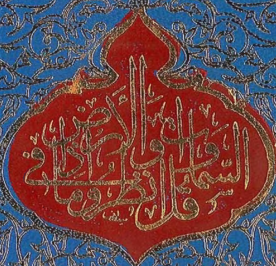 قُلِ انظُرُوا مَاذَا فِي السَّمَاوَاتِ وَالْأَرْضِ